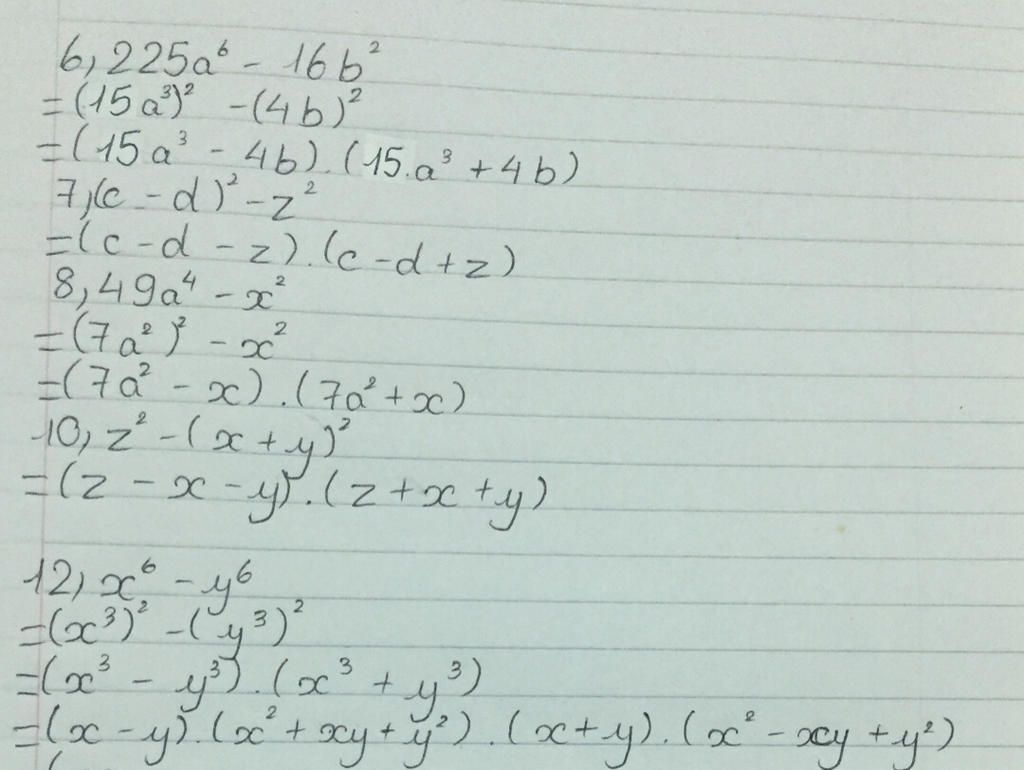 6, 225a⁶ - 16b²
= (15a³)² - (4b)²
= (15a³ - 4b).(15.a³ + 4b)
7, (c - d)² - z²
= (c - d - z).(c - d + z)
8, 49a⁴ - x²
= (7a²)² - x²
= (7a² - x).(7a² + x)
10, z² - (x + y)²
= (z - x - y).(z + x + y)
12, x⁶ - y⁶
= (x³)² - (y³)²
= (x³ - y³).(x³ + y³)
= (x - y).(x² + xy + y²).(x + y).(x² - xy + y²)